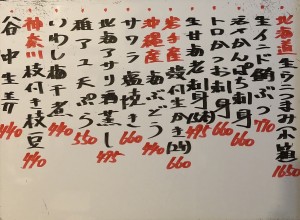 北海道生ウニつまみ小箱 1650
生インド鮪ぶつ 770
活〆かんぱち刺身 660
トロかつお刺身 660
生甘海老刺身 495
岩手産殻付生かき(2ケ) 660
沖縄産海ぶどう 440
サワラ塩焼き 660
北海アサリ酒蒸し 495
稚アユ天ぷら 550
いわし梅干煮 440
神奈川枝付き枝豆 440
谷中生姜 440